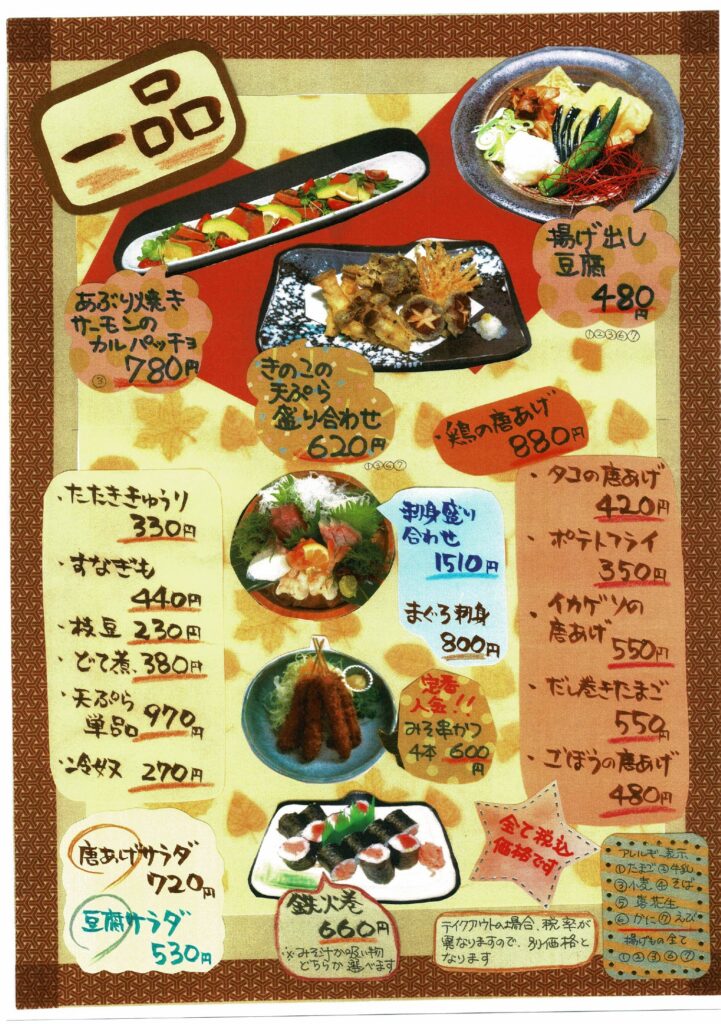 一品
揚げ出し
豆腐
480円
①②③⑥⑦
あぶり焼き
サーモンの
カルパッチョ
③ 780円
きのこの
天ぷら
盛り合わせ
620円
①③⑥⑦
・鶏の唐あげ
880円
・たたききゅうり
330円
・すなぎも
440円
・枝豆 230円
・どて煮 380円
・天ぷら
単品 970円
・冷奴 270円
刺身盛り
合わせ
1510円
まぐろ刺身
800円
定番
人気!!
みそ串かつ
4本 600円
・タコの唐あげ
420円
・ポテトフライ
350円
・イカゲソの
唐あげ
550円
・だし巻きたまご
550円
・ごぼうの唐あげ
480円
唐あげサラダ
720円
豆腐サラダ
530円
鉄火巻
660円
※みそ汁か吸い物
どちらか選べます
全て税込
価格です
テイクアウトの場合、税率が
異なりますので、別価格と
なります
アレルギー表示
①たまご ②牛乳
③小麦 ④そば
⑤落花生
⑥かに ⑦えび
揚げもの全て
①②③⑥⑦